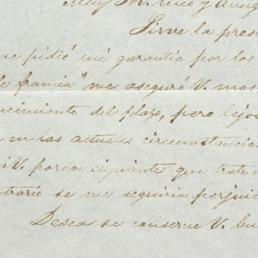 Muy Sor. mio y amig
Sirve la prese
que pidió mi garantia por los
me aseguró V. mas
cimiento del plazo, pero lejos
en las actuales circunstancias
V. por consiguiente que trate
trario se me seguiria perjuic
Desea se conserve V. bu